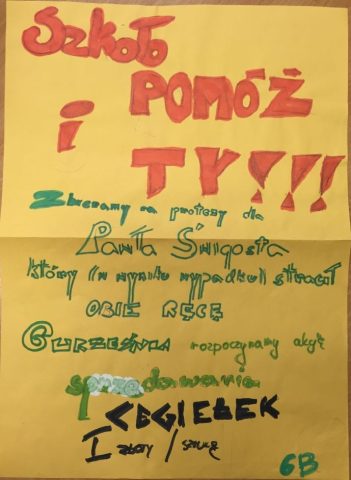 Szkoło
POMÓŻ
i
TY!!!
Zbieramy na protezy dla
Pawła Śmigosta
który (w wyniku wypadku) stracił
OBIE RĘCE
6 WRZEŚNIA rozpoczynamy akcję
sprzedawania
CEGIEŁEK
1 złoty / sztukę
6B